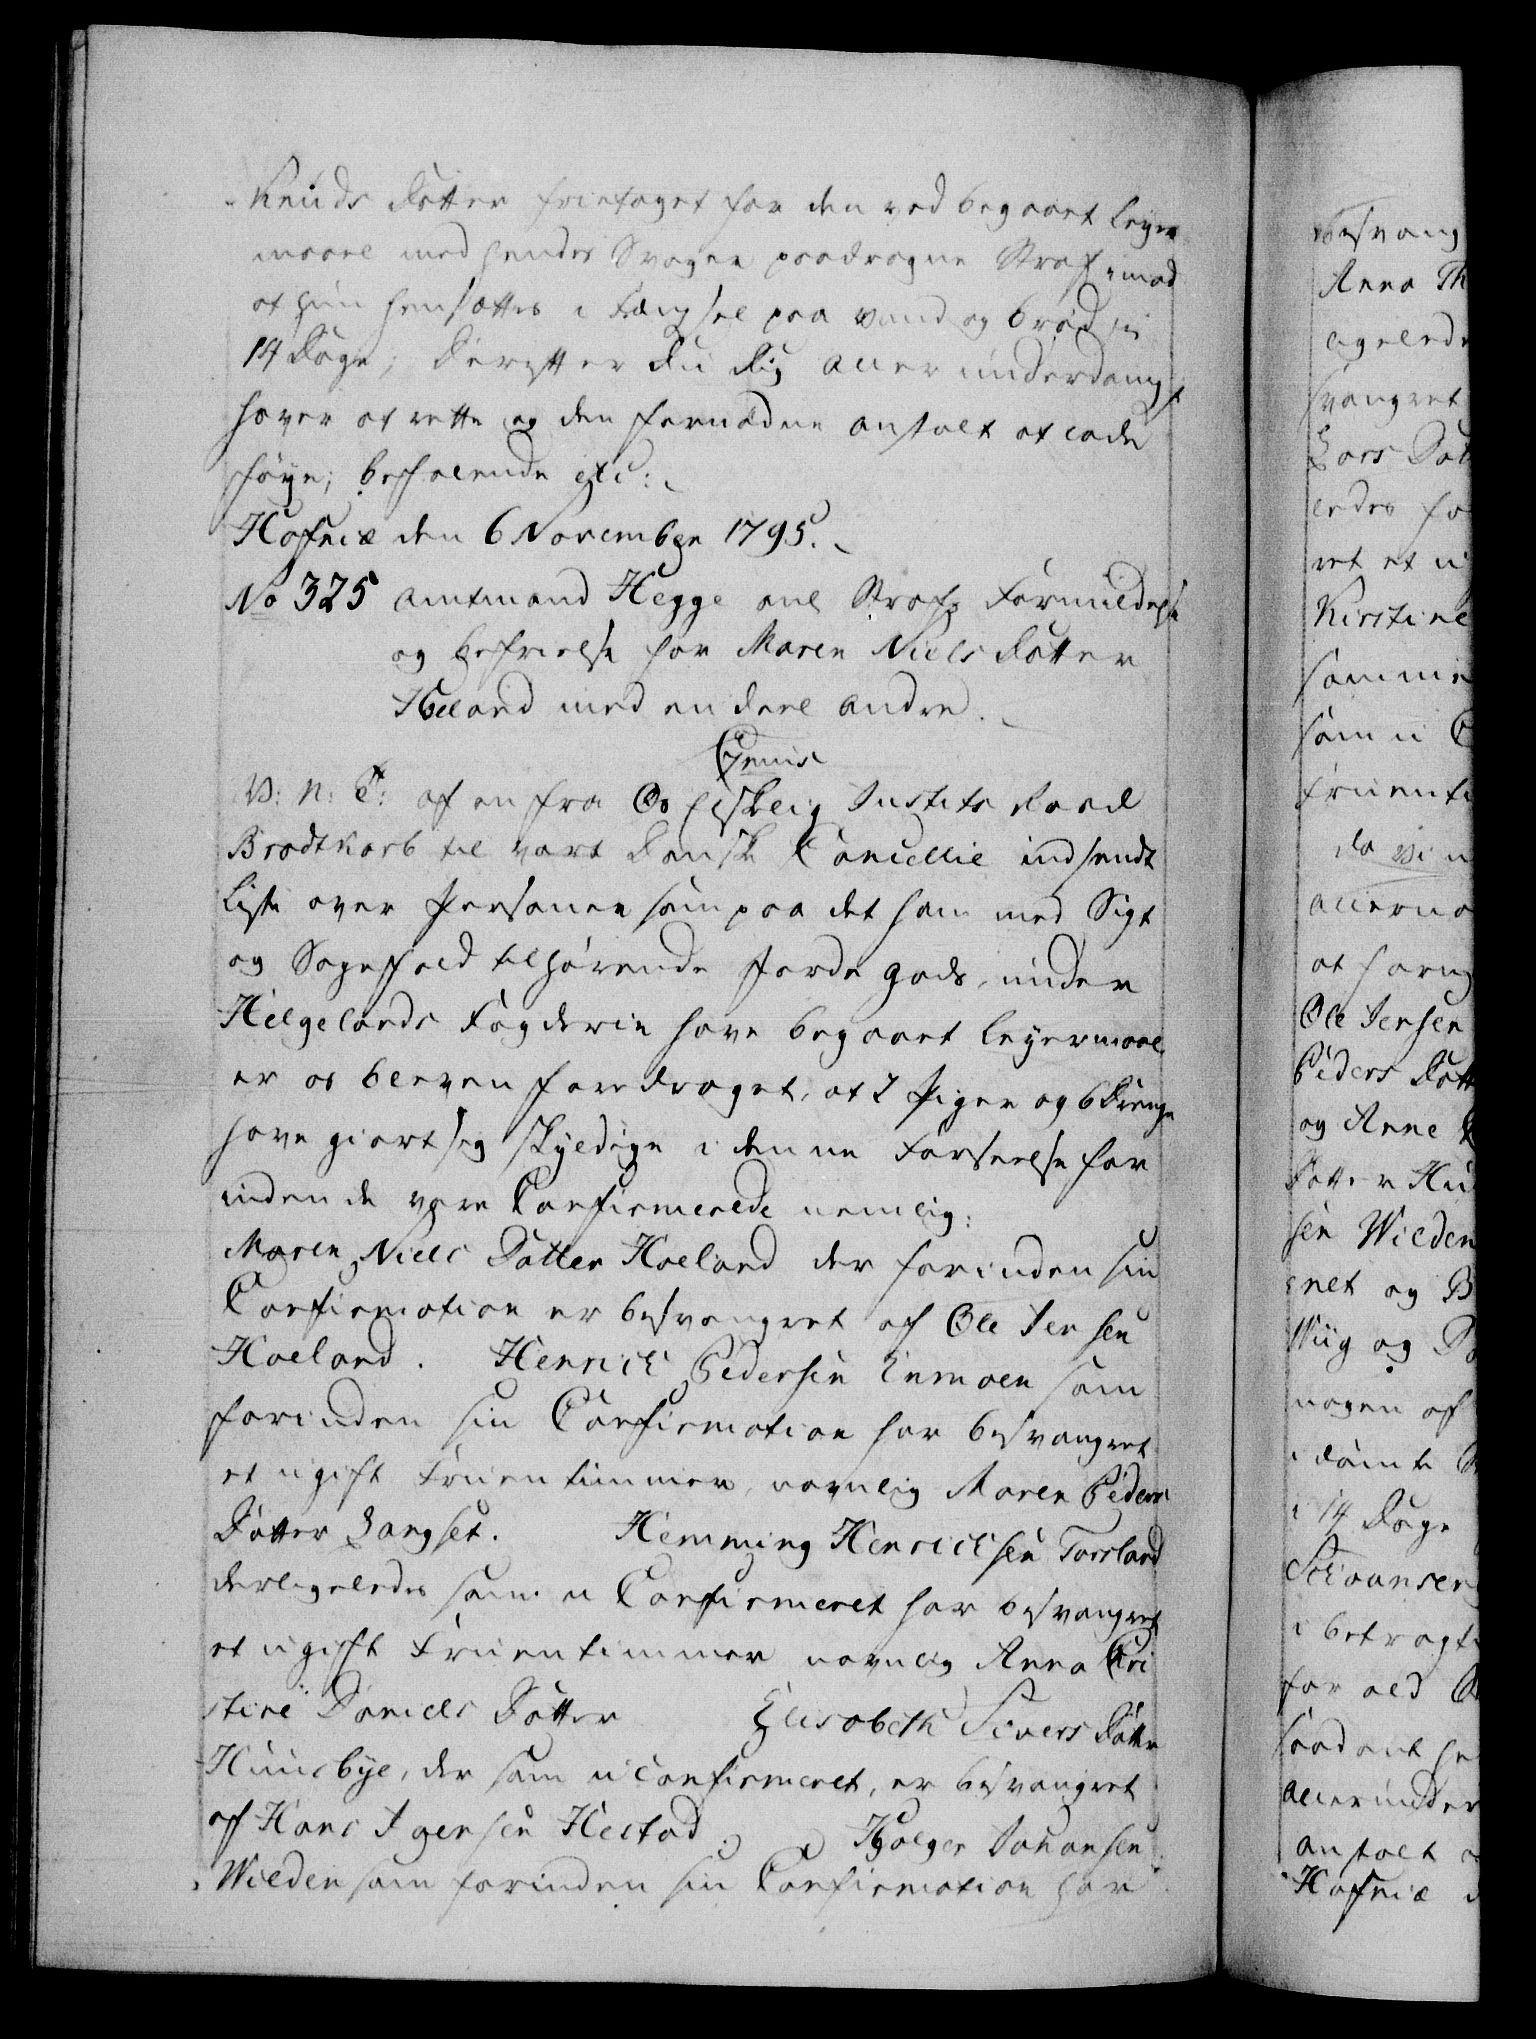 Knuds Datter fritaget for den ved begaaet Leyer
maael med hendes Svoger paadragne Straf, imod
at hun hensættes i Fængsel paa vand og brød i
14 Dage; Derefter du dig allerunderdanigst
haver at rette og den fornødne anstalt at lade
føye; befalende etc:
Hafniæ den 6 November 1795.
No 325 amtmand Hegge anl Straf Formildelse
og befrielse for Maren Niels Datter
Hæland med en deel andre.
V: n: T: af en fra Os elskelig Justits Raad
Brodtkorb til vort danske Cancellie indsendt
Liste over Personer som paa det ham med Sigt
og Sagefald tilhørende Jorde gods, under
Helgelands Fogderie have begaaet Leyermaal,
er os bleven foredraget, at 2 Piger og 6 Drenge
have giort sig skyldige i denne Forseelse for
inden de vare Confirmerede nemlig:
Maren Niels Datter Hæland der forinden sin
Confirmation er besvangret af Ole Jensen
Hæland. Henrich Pedersen Enmoen som
forinden sin Confirmation har besvangret
et ugift Fruentimmer, navnlig Maren Peders
Datter Langset. Hemming Henrichsen Forsland
derligeledes som u Confirmeret har besvangret
et ugift Fruentimmer navnlig Anna Kri
stine Daniels Datter Elisabeth Sivers Datter
Huusbye, der som uconfirmeret, er besvangret
af Hans Jgensen Hestad. Holger Johansen
Wilden som forinden sin Confirmation har
besvang
Anna Th
ligeled
svangret
Lars Dat
ledes ha
ret et u
Kirstine
samme
som u C
Fruenti
da vi n
allerna
at for
Ole Jensen
Peders Datt
og Anne
Datter Hu
sen Wilden
net og B
Wiig og D
nogen af
idømte S
i 14 Dage
Johansen
i betragt
for
saadant
allerunder
anstalt
Hafniæ d